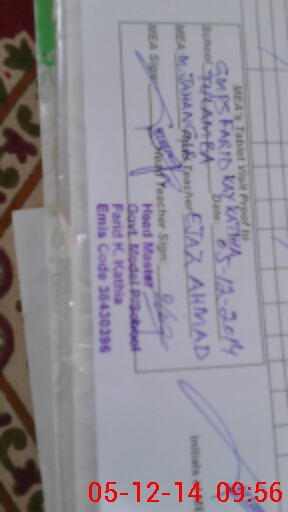 MEA's Tablet Visit Proof to
School GMPS FARID KAY KATHIA
TULAMBA Date: 05-12-2014
MEA M. JAHANGIR Head Teacher EJAZ AHMAD
MEA Sign: Head Teacher Sign:
Head Master
Govt. Model P/School
Farid K. Kathia
Emis Code 36430396
Initials
05-12-14 09:56